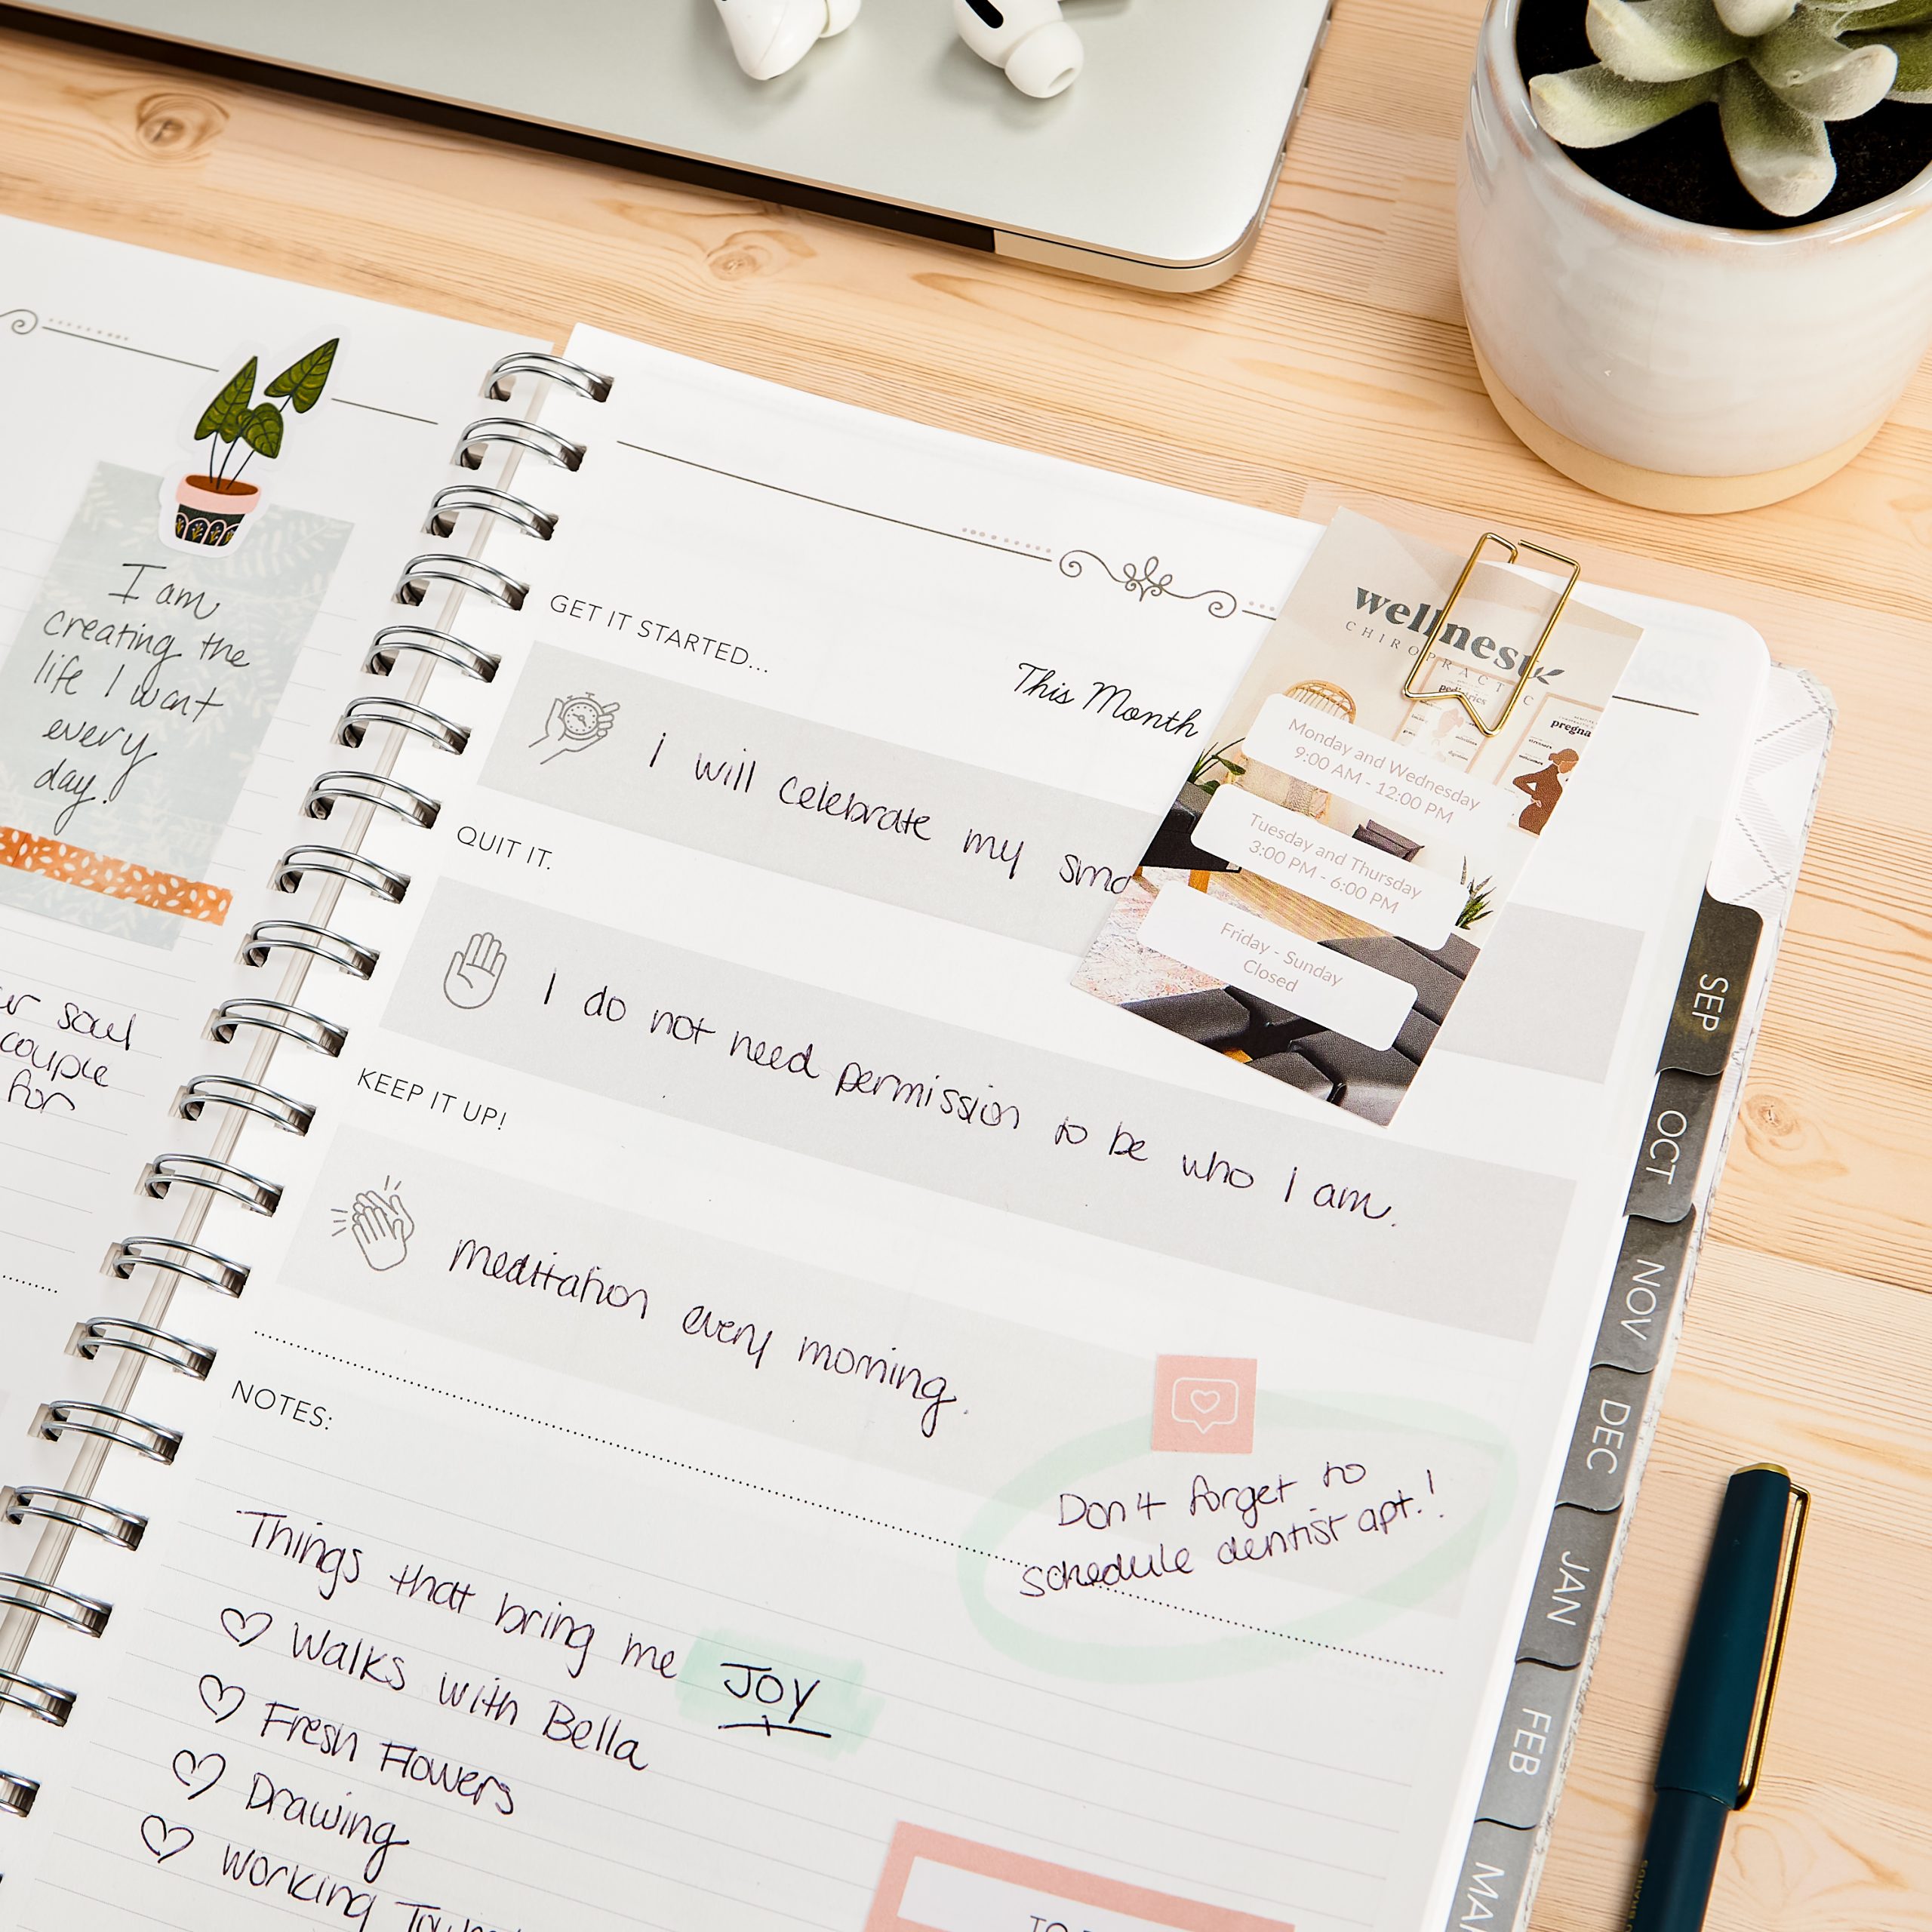 I am
creating the
life I want
every
day.
soul
couple
for
GET IT STARTED...
This Month
I will celebrate my
QUIT IT.
I do not need permission to be who I am.
KEEP IT UP!
meditation every morning.
NOTES:
Don't forget to
schedule dentist apt.!
Things that bring me JOY
Walks with Bella
Fresh Flowers
Drawing
Working
TO
wellness
CHIROPRACTIC
pediatrics
pregna
Monday and Wednesday
9:00 AM - 12:00 PM
Tuesday and Thursday
3:00 PM - 6:00 PM
Friday - Sunday
Closed
SEP
OCT
NOV
DEC
JAN
FEB
MA